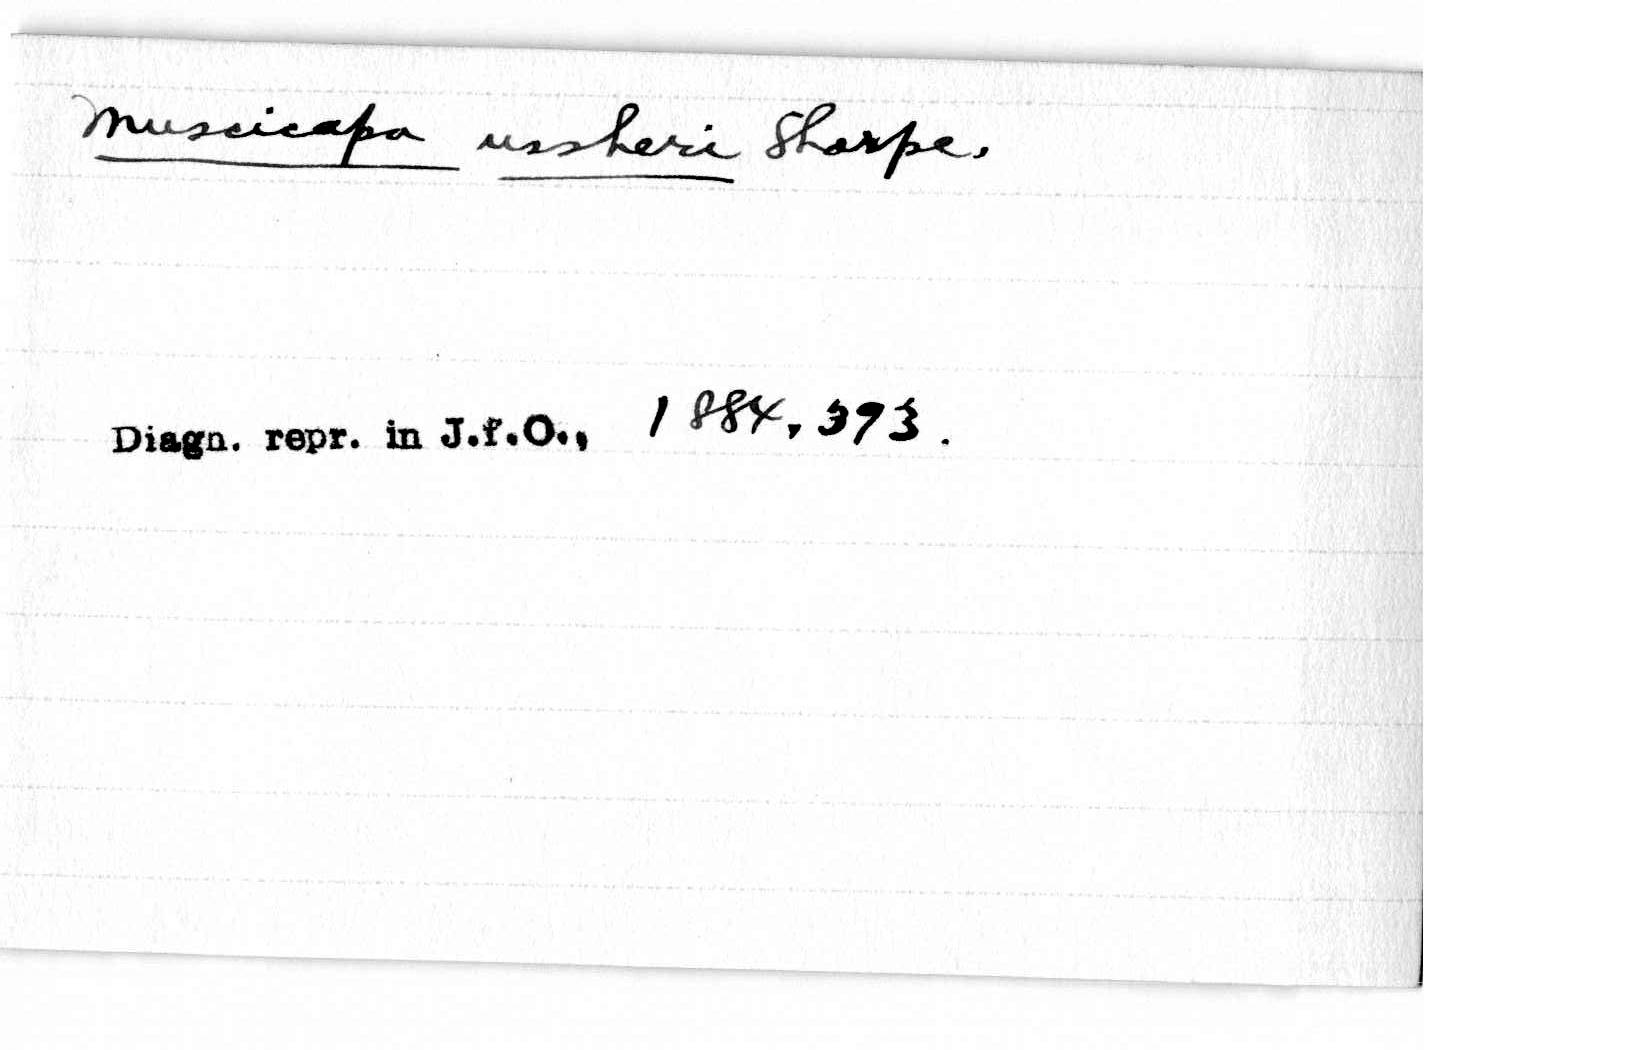 Muscicapa ussheri Sharpe.
Diagn. repr. in J.f.O., 1884, 373.